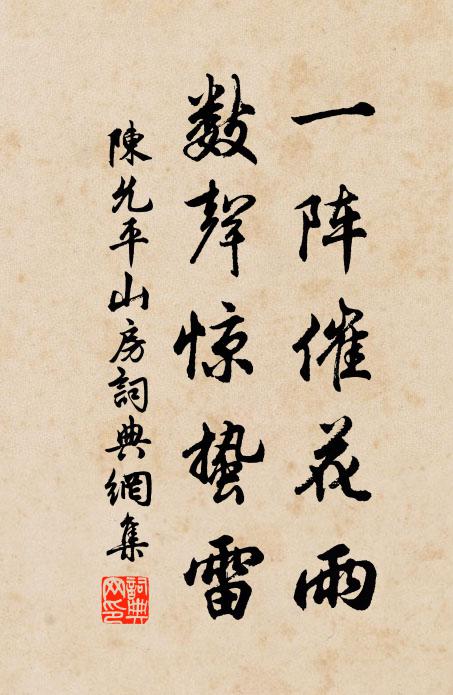 一阵催花雨
数聲惊蛰雷
陳允平山房詞典網集
詞典网印